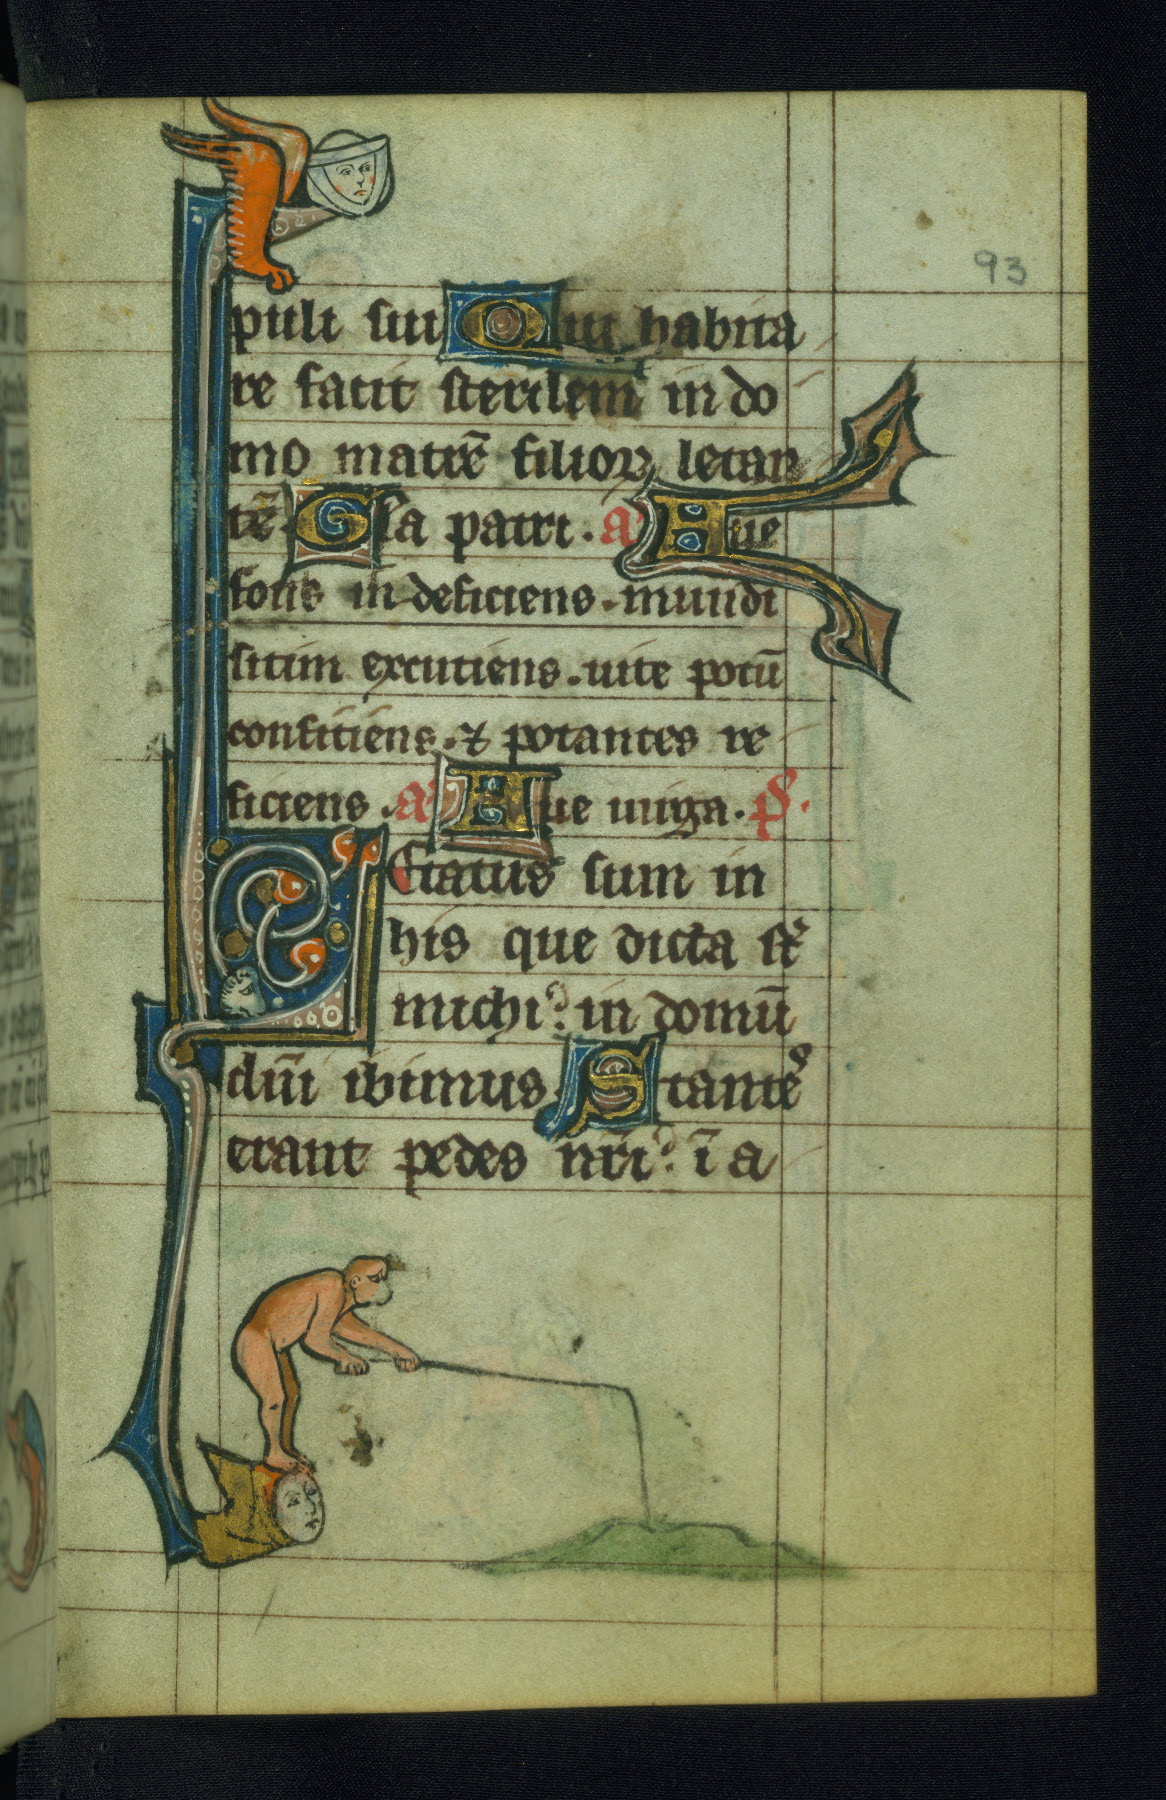 93
puli sui Qui habita
re facit sterilem in do
mo matrē filioꝝ letan
tē. Gła patri. a᷎ Aue
fons in deficiens. mundi
sitim excutiens. uite potū
conficiens. ⁊ potantes re
ficiens. a᷎ Aue uirga. ps.
Letatus sum in
his que dicta st̃
michi: in domū
dnī ibimus Stantes
erant pedes nr̄i: ī a